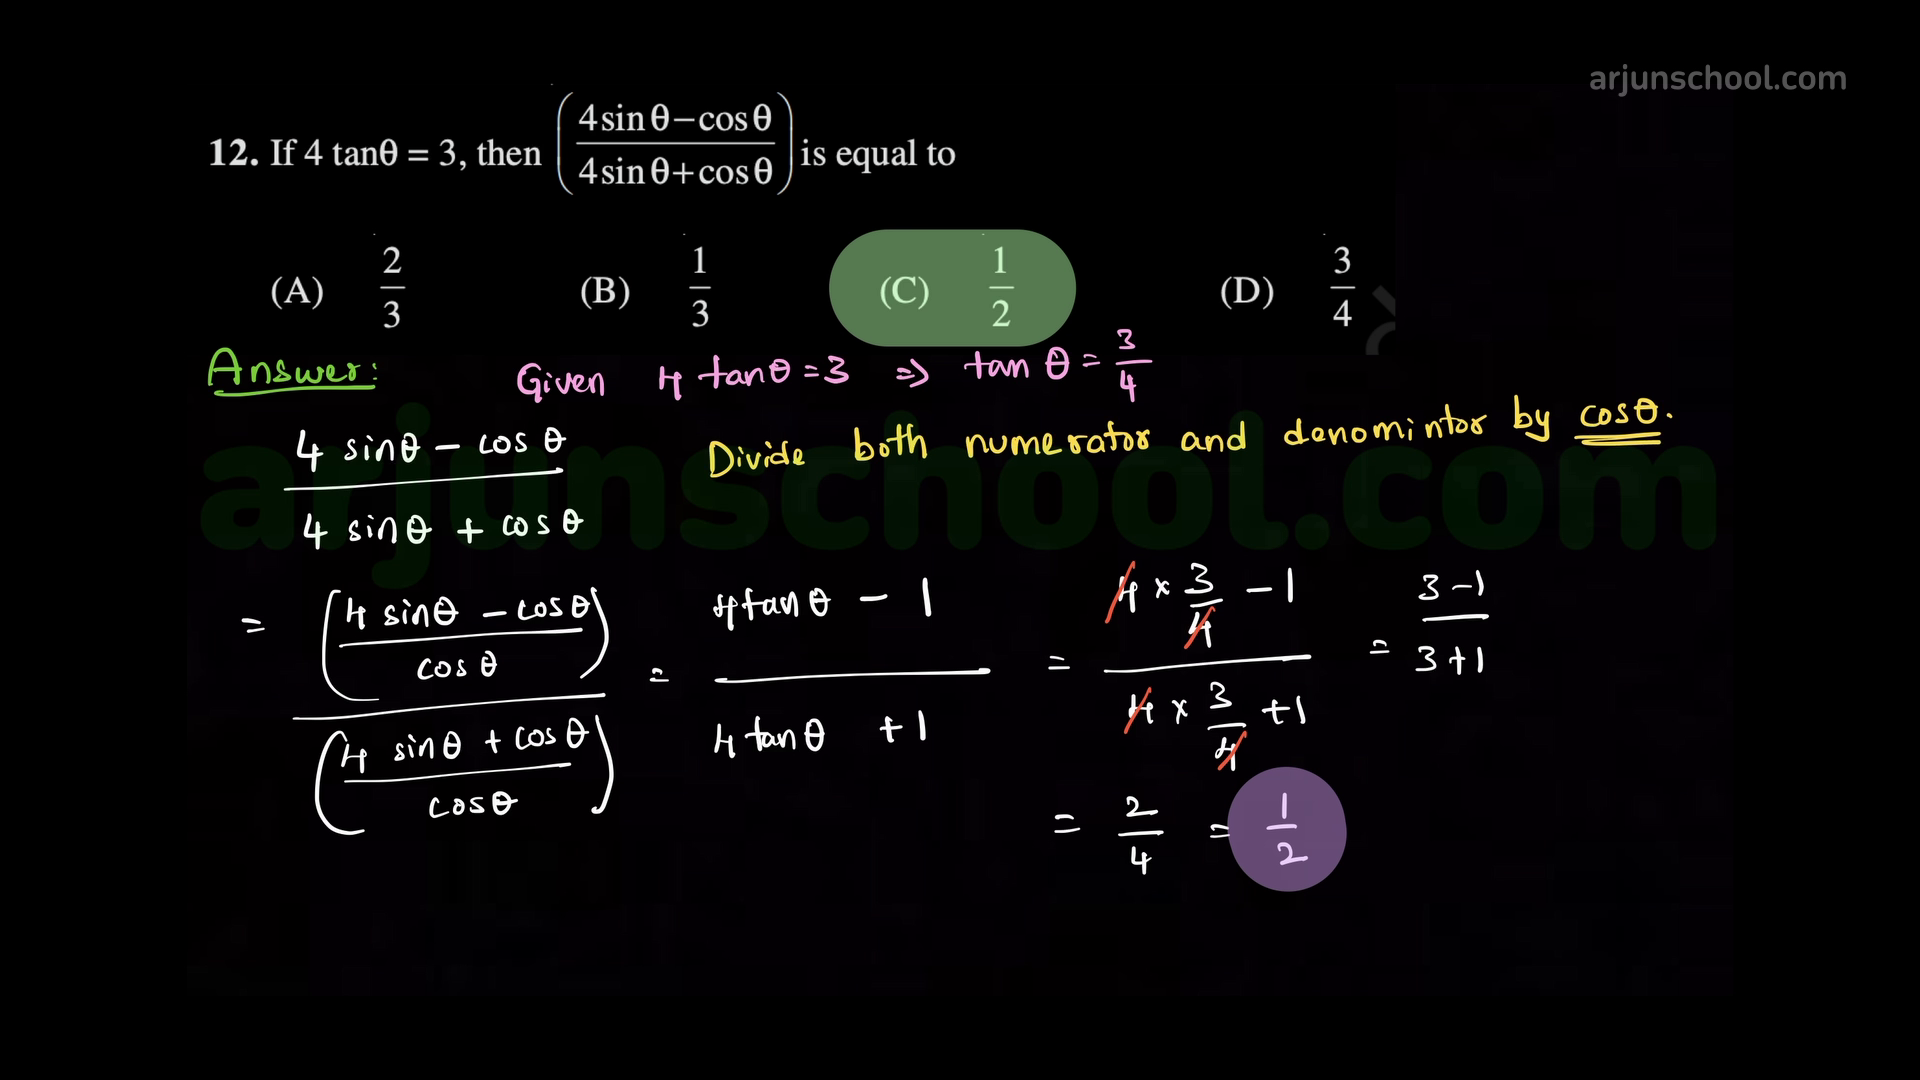 arjunschool.com
12. If 4 tanθ = 3, then (4sinθ−cosθ / 4sinθ+cosθ) is equal to
(A) 2/3 (B) 1/3 (C) 1/2 (D) 3/4
Answer: Given 4 tanθ = 3 ⇒ tan θ = 3/4
4 sinθ − cos θ / 4 sinθ + cos θ
Divide both numerator and denomintor by cosθ.
= (4 sinθ − cosθ / cosθ) / (4 sinθ + cosθ / cosθ) = 4tanθ − 1 / 4tanθ + 1 = 4 × 3/4 − 1 / 4 × 3/4 + 1 = 3−1 / 3+1
= 2/4 = 1/2
arjunschool.com